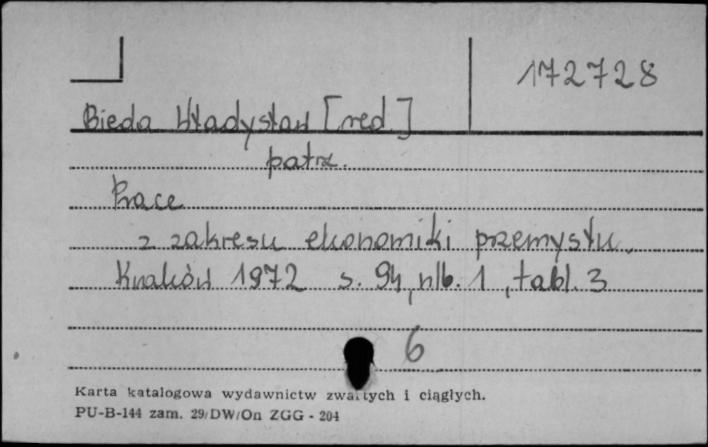 172728
Bieda Władysław [red.]
patrz.
Prace
z zakresu ekonomiki przemysłu.
Kraków 1972 s. 94, nlb. 1, tabl. 3
6
Karta katalogowa wydawnictw zwartych i ciągłych.
PU-B-144 zam. 29/DW/On ZGG - 204